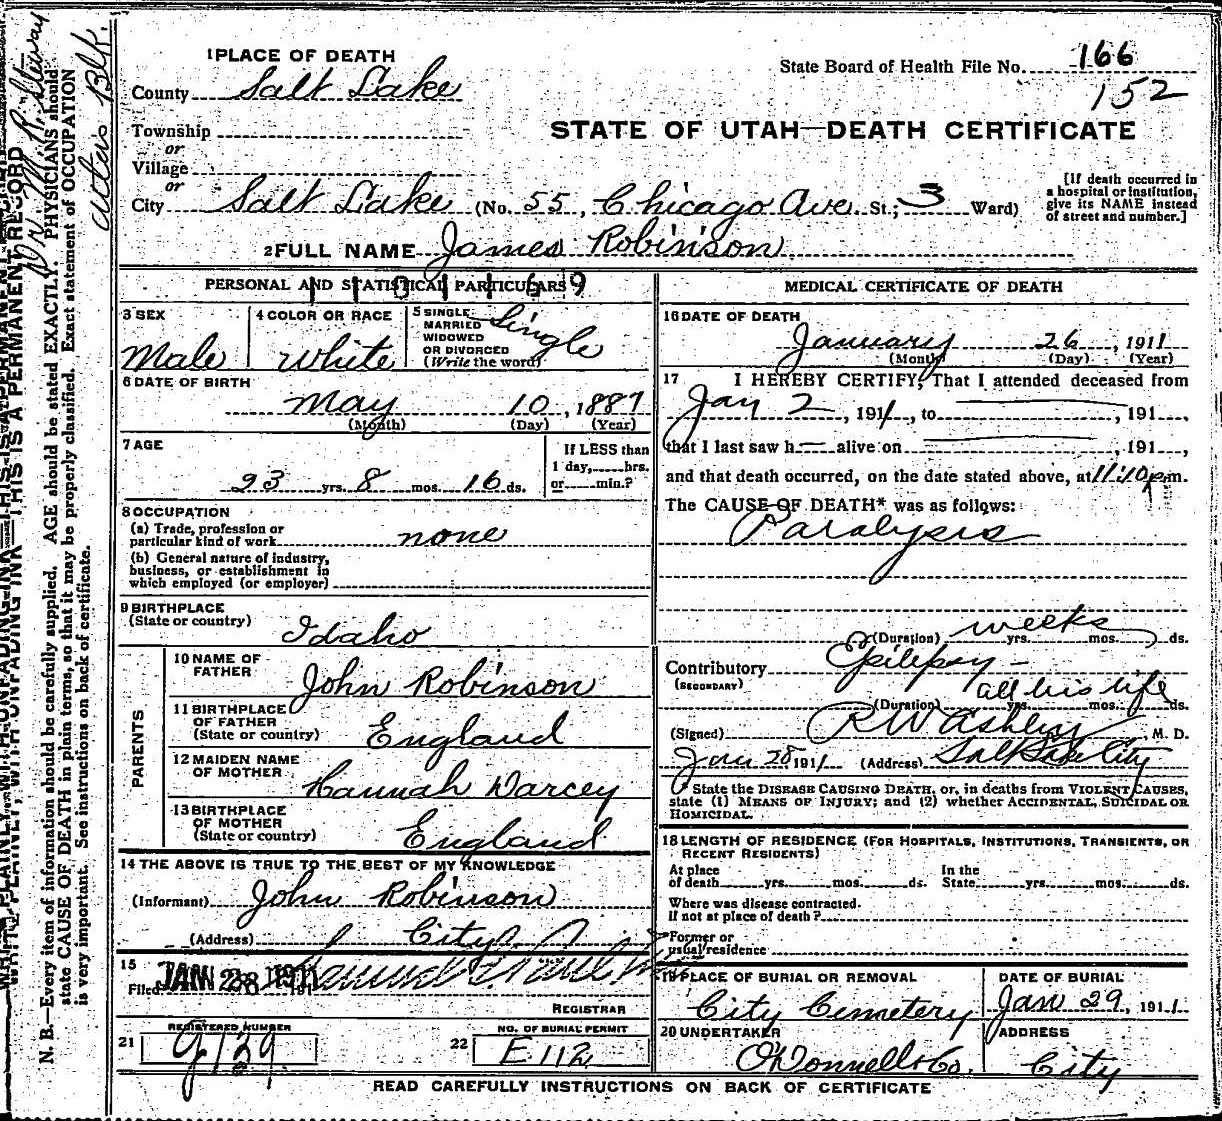 1 PLACE OF DEATH
County Salt Lake
State Board of Health File No. 166
152
Township
or
Village
or
STATE OF UTAH—DEATH CERTIFICATE
City Salt Lake (No. 55, Chicago Ave St.; 3 Ward)
[If death occurred in a hospital or institution, give its NAME instead of street and number.]
2 FULL NAME James Robinson
PERSONAL AND STATISTICAL PARTICULARS
3 SEX
Male
4 COLOR OR RACE
White
5 SINGLE,
MARRIED
WIDOWED
OR DIVORCED
(Write the word)
Single
6 DATE OF BIRTH
May 10, 1887
(Month) (Day) (Year)
7 AGE
23 yrs. 8 mos. 16 ds.
If LESS than
1 day, hrs.
or min.?
8 OCCUPATION
(a) Trade, profession or
particular kind of work none
(b) General nature of industry,
business, or establishment in
which employed (or employer)
9 BIRTHPLACE
(State or country) Idaho
PARENTS
10 NAME OF
FATHER John Robinson
11 BIRTHPLACE
OF FATHER
(State or country) England
12 MAIDEN NAME
OF MOTHER Hannah Darcey
13 BIRTHPLACE
OF MOTHER
(State or country) England
14 THE ABOVE IS TRUE TO THE BEST OF MY KNOWLEDGE
(Informant) John Robinson
(Address) City
15
Filed JAN 28 1911
REGISTRAR
21 REGISTERED NUMBER
G139
22 NO. OF BURIAL PERMIT
E 112
MEDICAL CERTIFICATE OF DEATH
16 DATE OF DEATH
January 26, 1911
(Month) (Day) (Year)
17 I HEREBY CERTIFY, That I attended deceased from
Jan 2, 1911, to , 191 ,
that I last saw h alive on , 191 ,
and that death occurred, on the date stated above, at 11:10 p m.
The CAUSE OF DEATH* was as follows:
Paralysis
(Duration) weeks yrs. mos. ds.
Contributory Epilepsy -
(SECONDARY)
all his life
(Duration) yrs. mos. ds.
(Signed) R W Ashley M. D.
Jan 28 1911 (Address) Salt Lake City
* State the DISEASE CAUSING DEATH, or, in deaths from VIOLENT CAUSES,
state (1) MEANS OF INJURY; and (2) whether ACCIDENTAL, SUICIDAL OR
HOMICIDAL.
18 LENGTH OF RESIDENCE (FOR HOSPITALS, INSTITUTIONS, TRANSIENTS, OR
RECENT RESIDENTS)
At place
of death yrs. mos. ds.
In the
State yrs. mos. ds.
Where was disease contracted.
if not at place of death?
Former or
usual residence
19 PLACE OF BURIAL OR REMOVAL
City Cemetery
DATE OF BURIAL
Jan 29, 1911
20 UNDERTAKER
O'Donnell & Co.
ADDRESS
City
READ CAREFULLY INSTRUCTIONS ON BACK OF CERTIFICATE
WRITE PLAINLY, WITH UNFADING INK—THIS IS A PERMANENT RECORD
N. B.—Every item of information should be carefully supplied. AGE should be stated EXACTLY. PHYSICIANS should
state CAUSE OF DEATH in plain terms, so that it may be properly classified. Exact statement of OCCUPATION
is very important. See instructions on back of certificate.